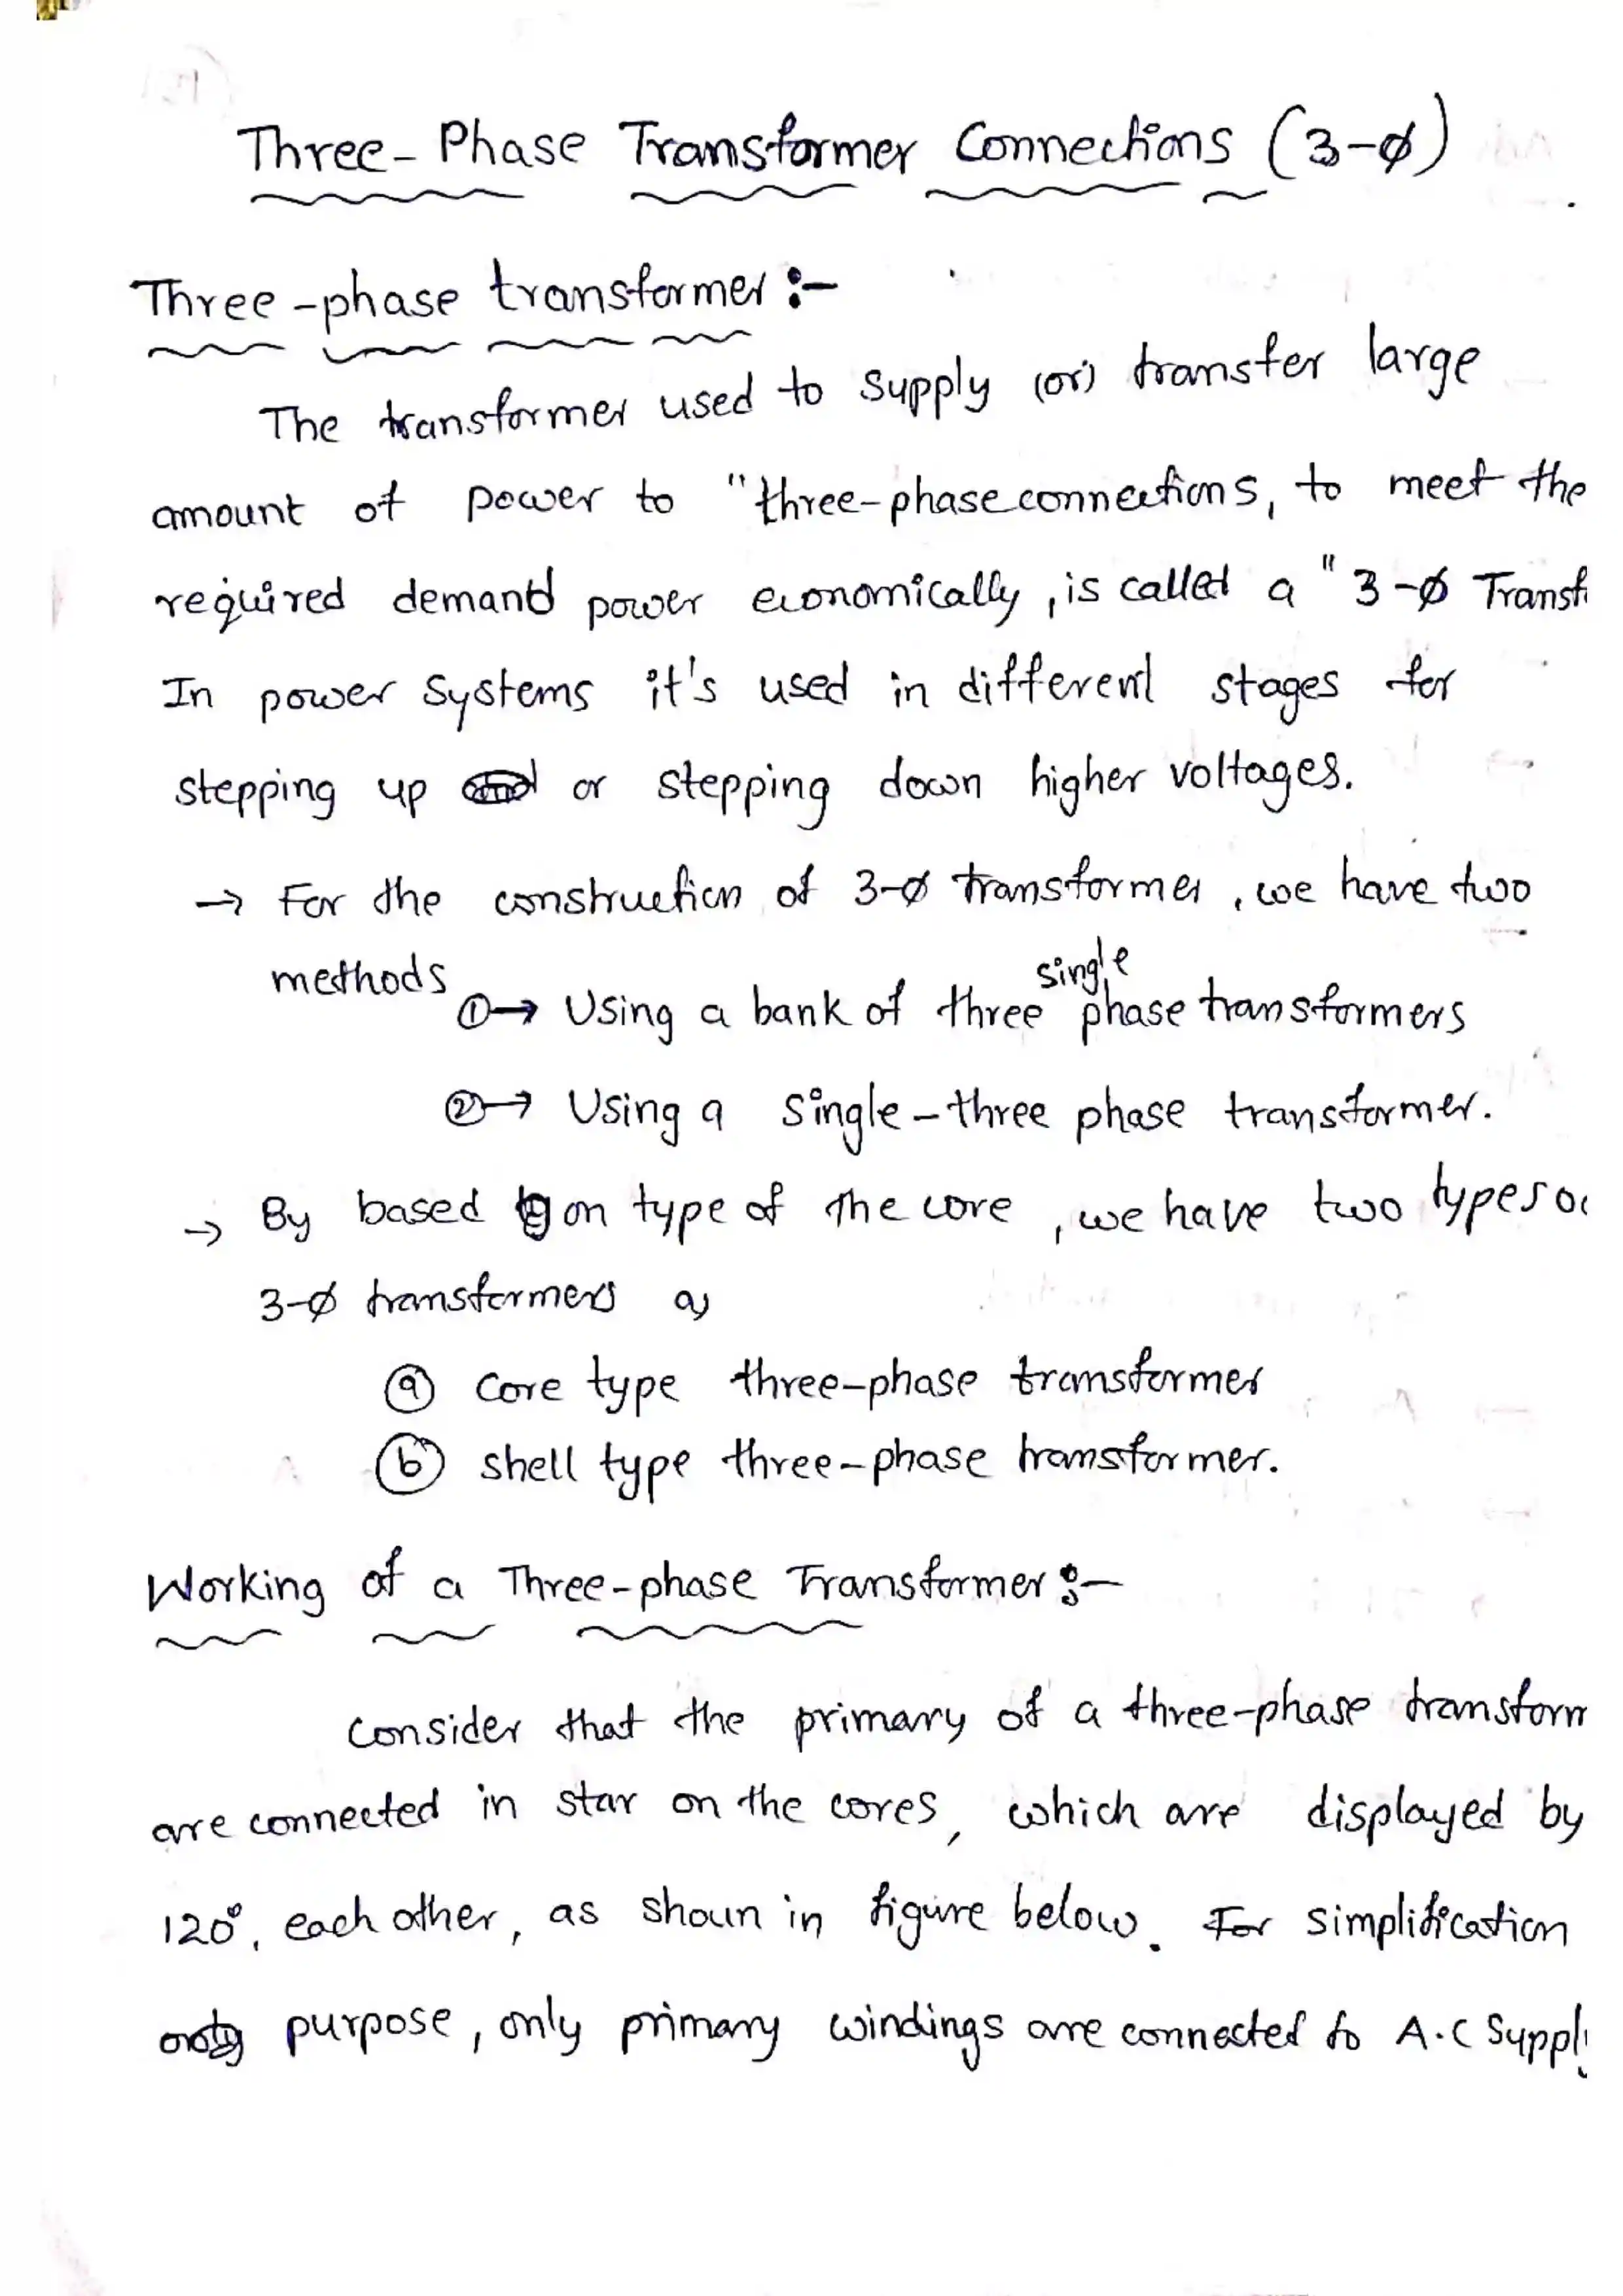 Three-Phase Transformer Connections (3-ø)
Three-phase transformer :-
The transformer used to supply (or) transfer large
amount of power to "three-phase connections, to meet the
required demand power economically, is called a "3-ø Transf
In power systems it's used in different stages for
stepping up or stepping down higher voltages.
→ For the construction of 3-ø transformer, we have two
methods
①→ Using a bank of three single phase transformers
②→ Using a single-three phase transformer.
→ By based on type of the core, we have two types o
3-ø transformers as
ⓐ core type three-phase transformer
ⓑ shell type three-phase transformer.
Working of a Three-phase Transformer :-
Consider that the primary of a three-phase transform
are connected in star on the cores, which are displayed by
120°, each other, as shown in figure below. For simplification
purpose, only primary windings are connected to A.C Supply